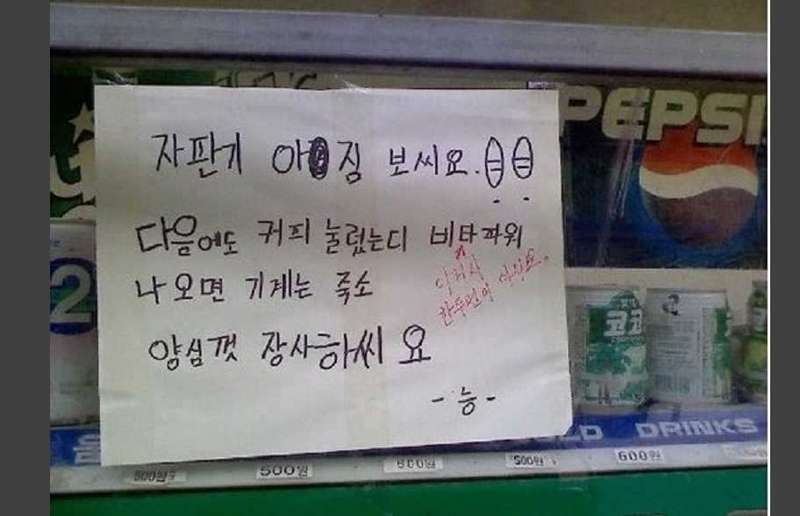 PEPSI
자판기 아짐 보씨요.
다음에도 커피 눌렀는디 비타파워
나오면 기계는 죽소
이거시
한두번이 아니요.
양심껏 장사하씨요
-능-
2
코코
DRINKS
500원 500원 600원 500원 600원